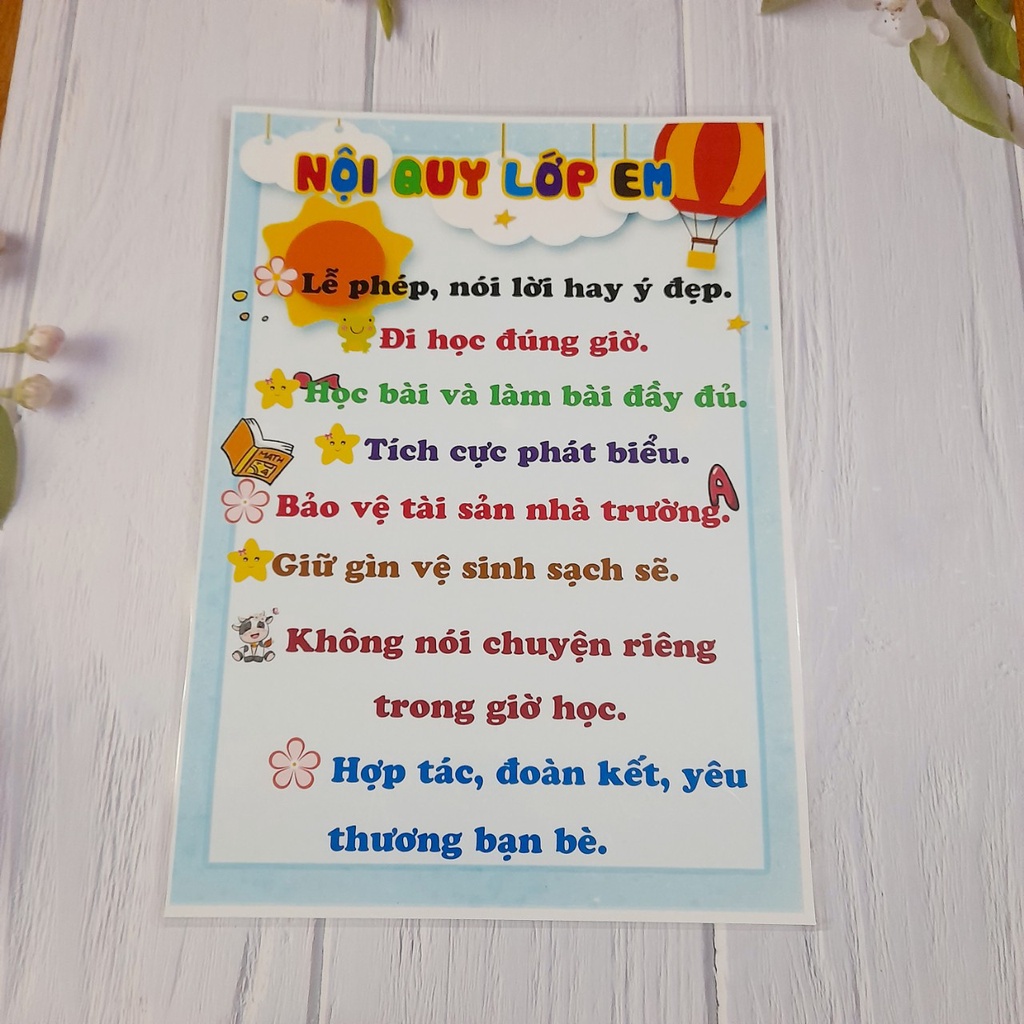 NỘI QUY LỚP EM
Lễ phép, nói lời hay ý đẹp.
Đi học đúng giờ.
Học bài và làm bài đầy đủ.
Tích cực phát biểu.
MATH
A
Bảo vệ tài sản nhà trường.
Giữ gìn vệ sinh sạch sẽ.
Không nói chuyện riêng
trong giờ học.
Hợp tác, đoàn kết, yêu
thương bạn bè.